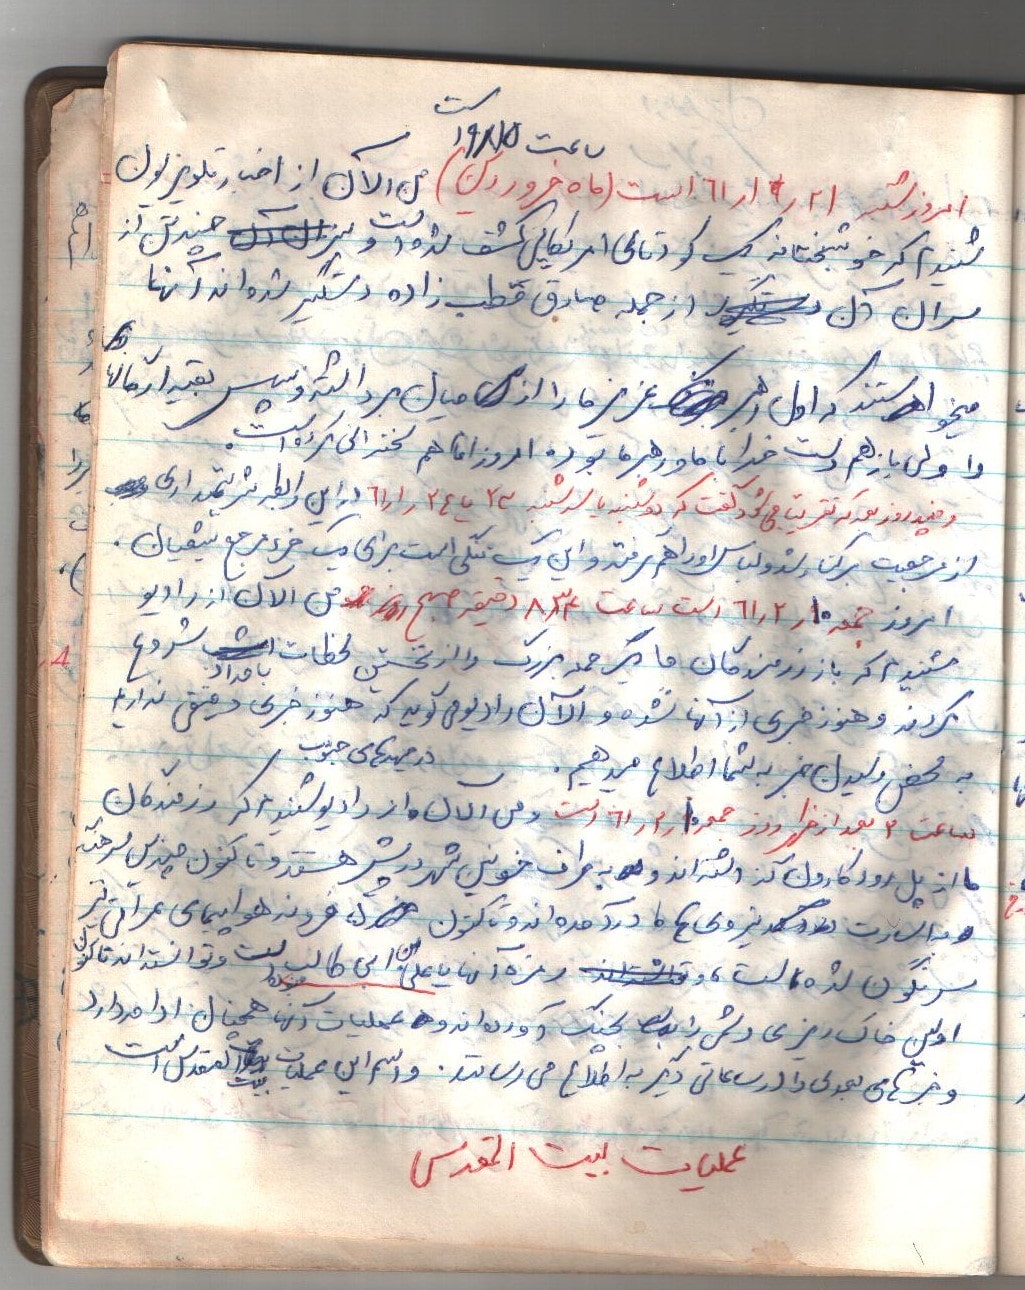 ساعت ۱۹/۸/۵ است
امروز شنبه ۲۱ ر ۱ ر ۶۱ است (ماه فروردین) من الآن از اخبار تلویزیون
شنیدم که خوشبختانه یک کودتای امریکایی کشف شده است و نیز چندین تن از
سران آن از جمله صادق قطب زاده دستگیر شده اند آنها
میخواستند که اول رهبر عزیز ما را از میان بردارند و سپس بقیه ارگانها
را ولی باز هم دست خدا با ما و رهبر ما بوده امروز اما هم سخنرانی کرده است.
و چند روز بعد که تقریبا می شود گفت که دوشنبه یا سه شنبه ۲۳ یا ۲۴ ر ۱ ر ۶۱ در این رابطه شریتمداری
از مرجعیت برکنار شد و لباس او را هم گرفتند و این یک ننگی است برای یک مرجع شیعیان.
امروز جمعه ۱۰ ر ۲ ر ۶۱ است ساعت ۸/۳۴ دقیقه صبح من الآن از رادیو
شنیدم که باز رزمندگان ما یک حمله بزرگ را از نخستین لحظات بامداد شروع
کردند و هنوز خبری از آنها نشده و الآن رادیو می گوید که هنوز خبری دقیقی نداریم
به محض رسیدن خبر به شما اطلاع میدهیم. در جبهه های جنوب
ساعت ۲ بعد از ظهر روز جمعه ۱۰ ر ۲ ر ۶۱ است و من الآن از رادیو شنیدم که رزمندگان
ما از پل رود کارون گذشته اند و به طرف خونین شهر در پیش هستند و تا کنون چندین سرهنگ
به اسارت نیروی های ما درآمده اند و تا کنون فروند هواپیمای عراقی نیز
سرنگون شده است و رمز آنها یا علی ابن ابی طالب بوده است و توانسته اند تا کنون
اولین خاکریزی دشمن را به چنگ آورده اند و عملیات آنها همچنان ادامه دارد
و خبرهای بعدی را در ساعاتی دیگر به اطلاع می رسانند. و اسم این عملیات بیت المقدس است
عملیات بیت المقدس